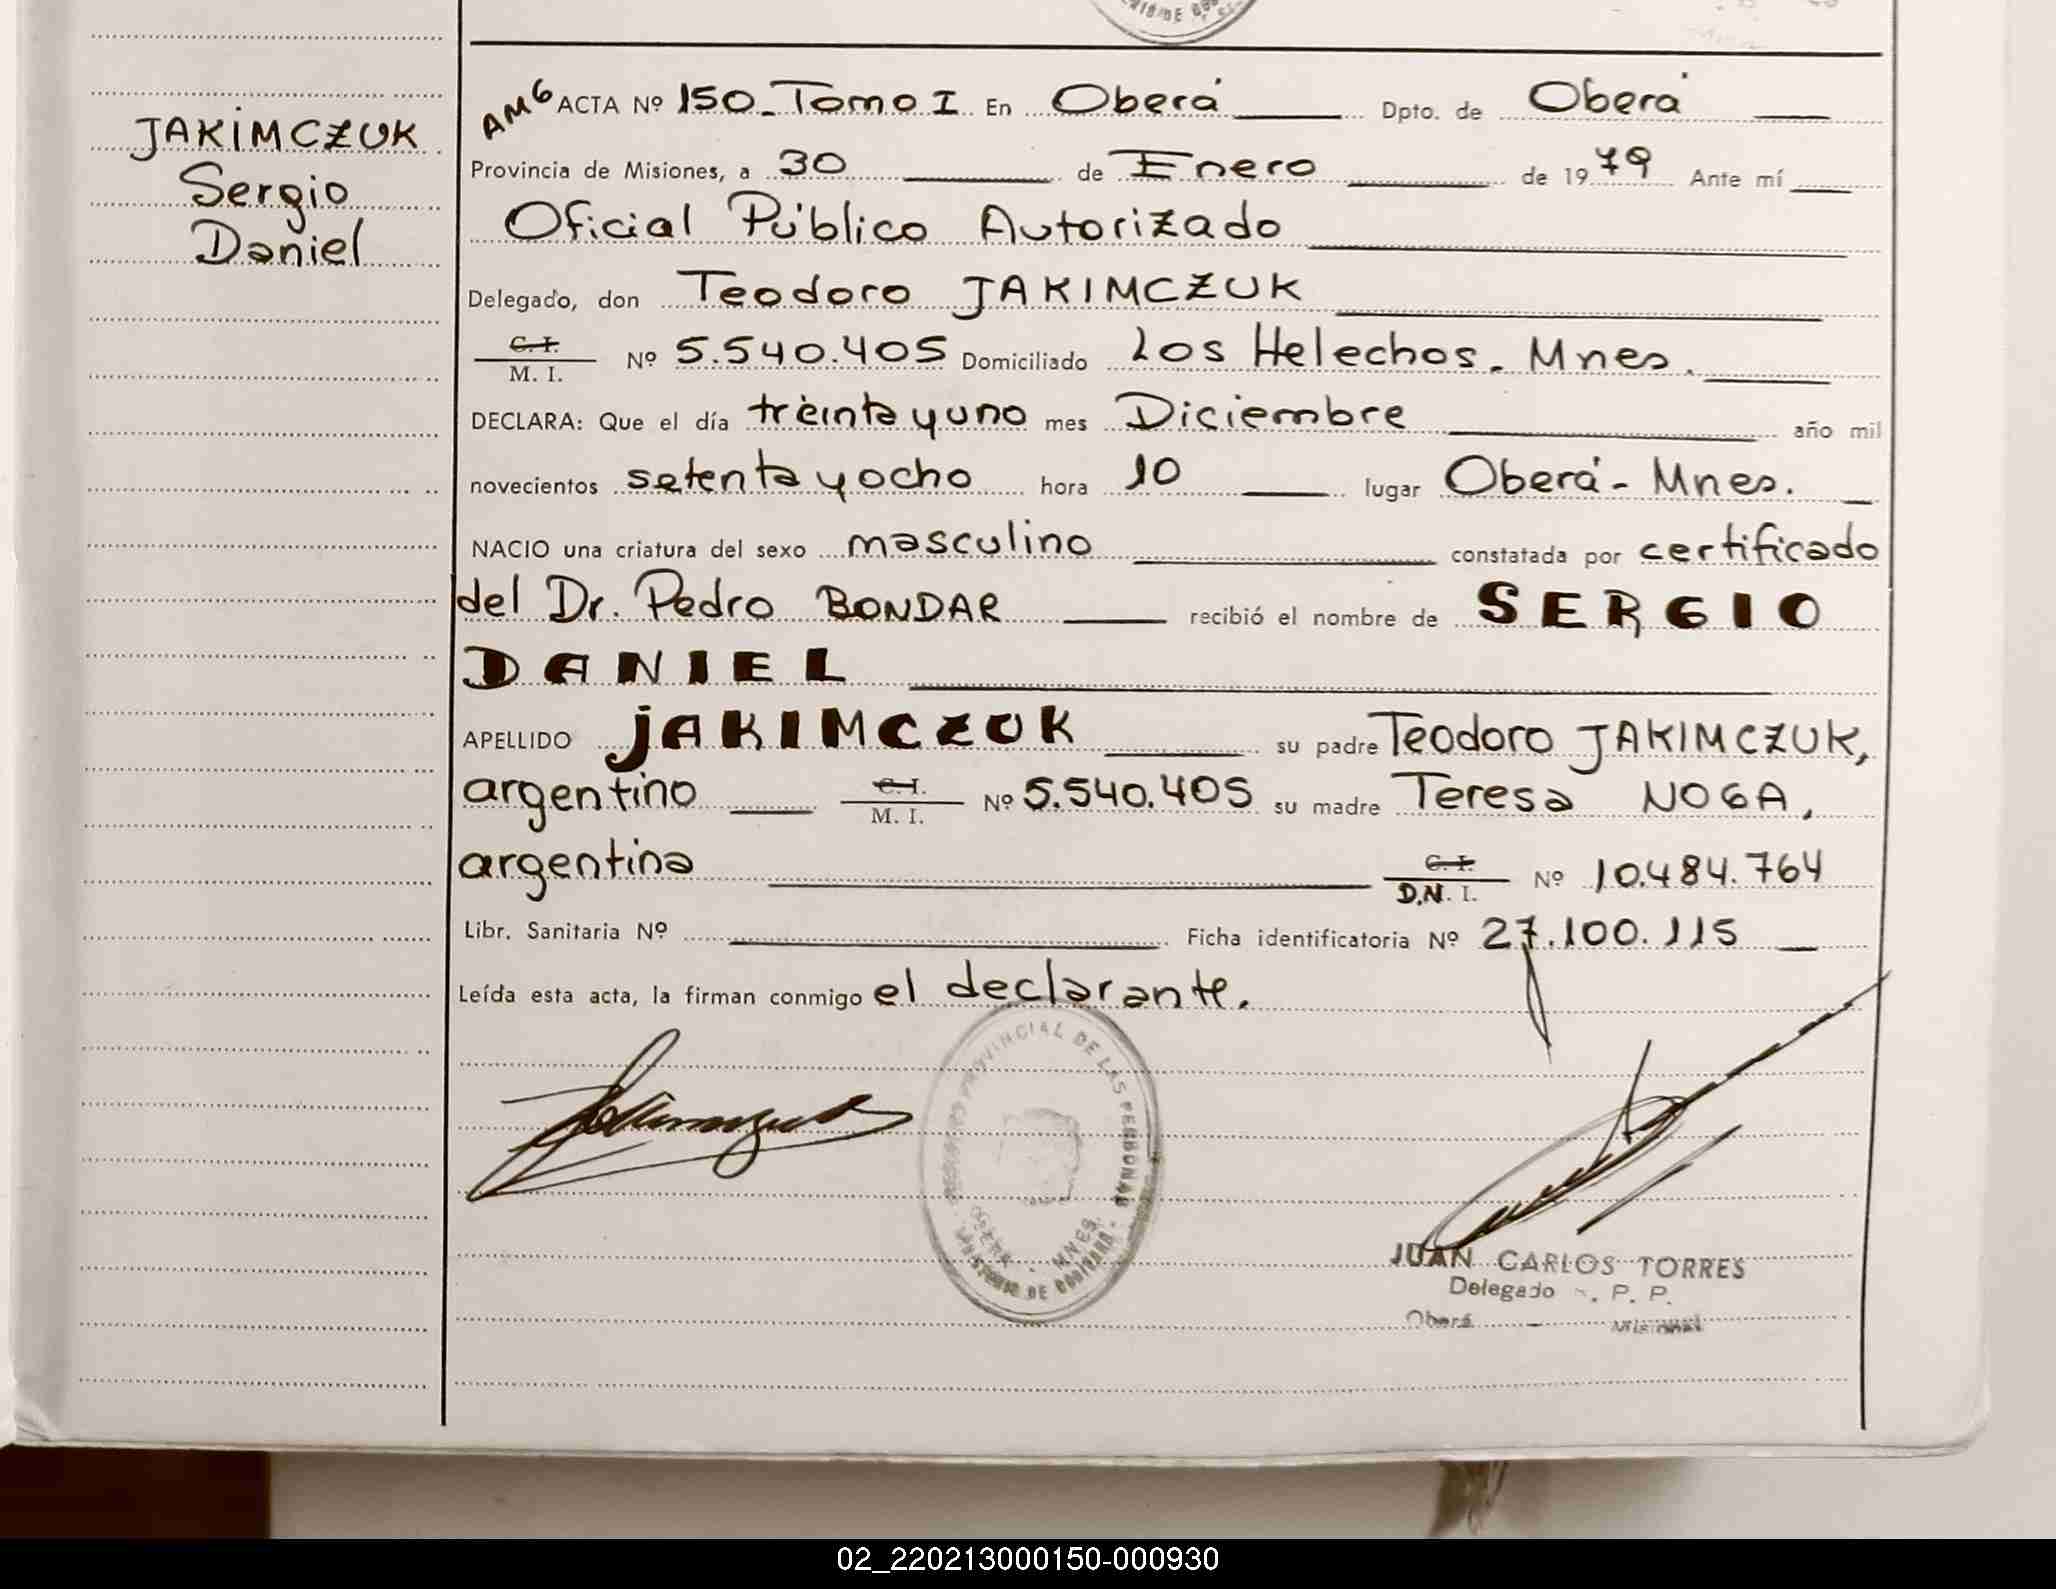 JAKIMCZUK
Sergio
Daniel
AMG ACTA Nº 150_Tomo I En Oberá Dpto. de Oberá
Provincia de Misiones, a 30 de Enero de 1979 Ante mí
Oficial Público Autorizado
Delegado, don Teodoro JAKIMCZUK
C.I.
M. I. Nº 5.540.405 Domiciliado Los Helechos - Mnes.
DECLARA: Que el día treinta y uno mes Diciembre año mil
novecientos setenta y ocho hora 10 lugar Oberá - Mnes.
NACIO una criatura del sexo masculino constatada por certificado
del Dr. Pedro BONDAR recibió el nombre de SERGIO
DANIEL
APELLIDO JAKIMCZUK su padre Teodoro JAKIMCZUK,
argentino C.I.
M. I. Nº 5.540.405 su madre Teresa NOGA,
argentina C.I.
D.N. I. Nº 10.484.764
Libr. Sanitaria Nº Ficha identificatoria Nº 27.100.115
Leída esta acta, la firman conmigo el declarante.
REGISTRO PROVINCIAL DE LAS PERSONAS
OBERA - MNES.
MINISTERIO DE GOBIERNO
JUAN CARLOS TORRES
Delegado P. P.
Oberá - Misiones
02_220213000150-000930